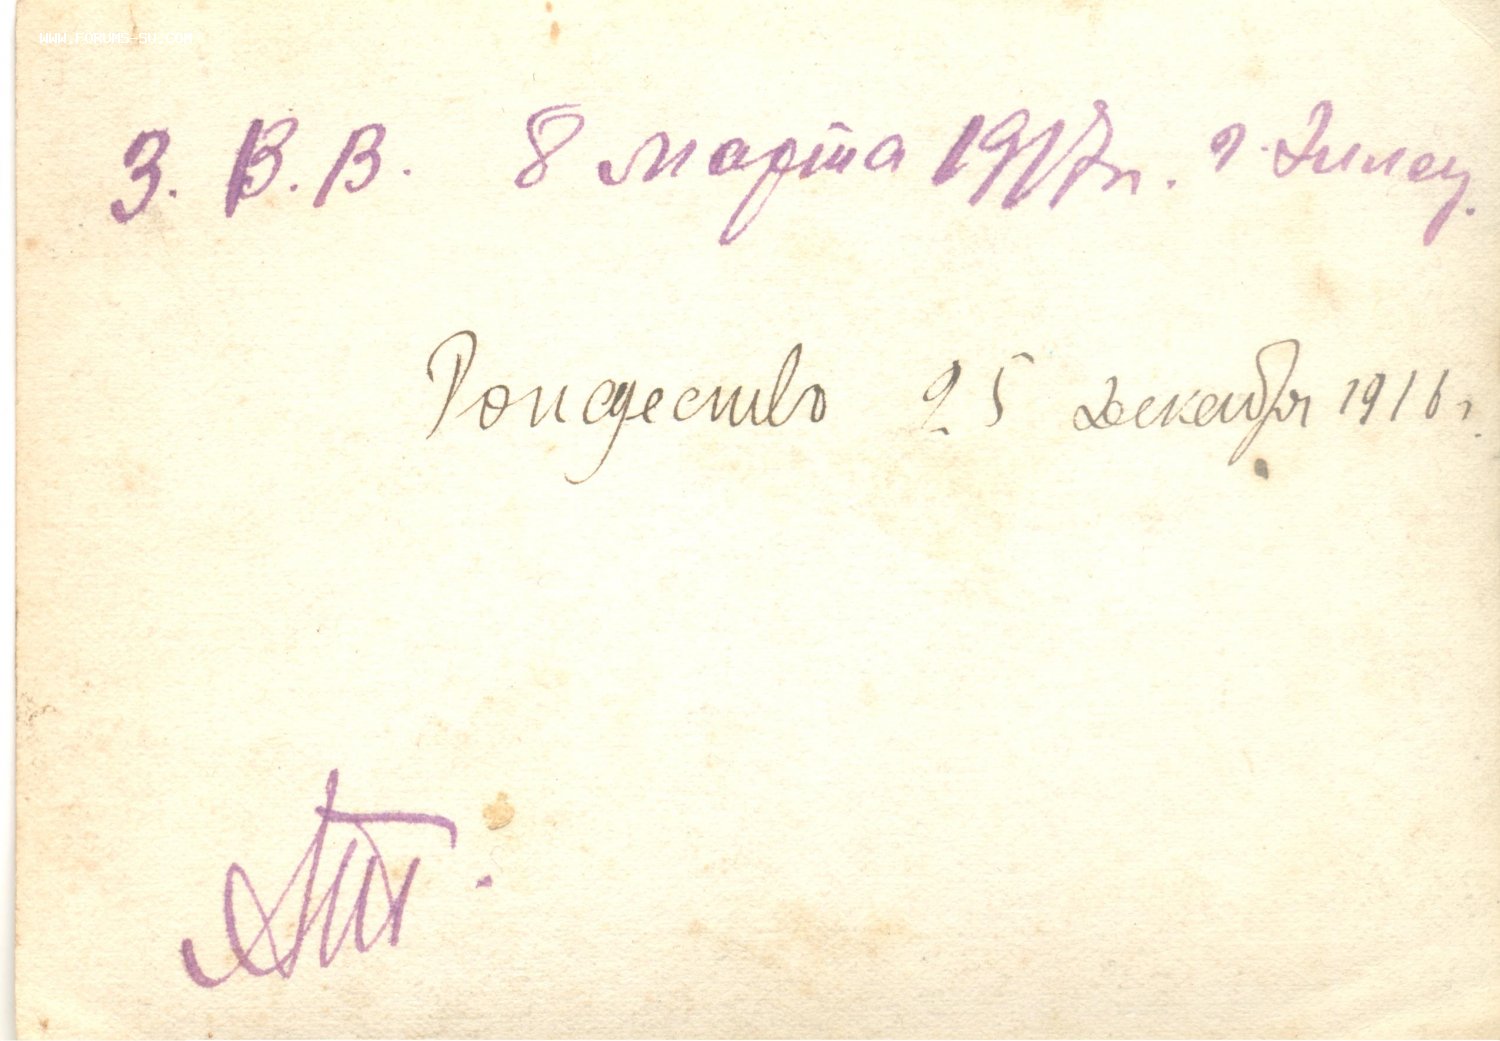 WWW.FORUMS-SU.COM
З. В. В. 8 марта 1917 г. г.
Рождество 25 декабря 1916 г.